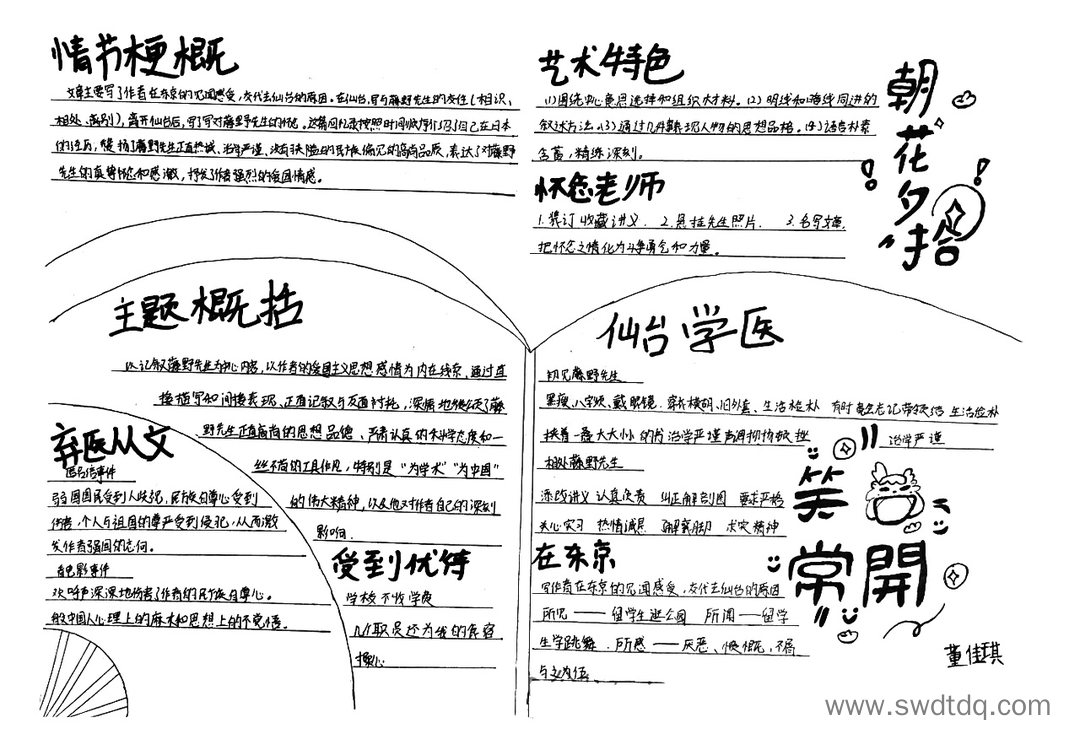 情节梗概
文章主要写了作者在东京的见闻感受，交代去仙台的原因。在仙台，写与藤野先生的交往（相识、
相处、离别），离开仙台后，写了对藤野先生的怀念。这篇回忆录按照时间顺序介绍了自己在日本
的经历，赞扬了藤野先生正直热诚、治学严谨、没有狭隘的民族偏见的高尚品质，表达了对藤野
先生的真挚怀念和感激，抒发了作者强烈的爱国情感。
艺术特色
(1)围绕中心意思选择和组织大材料。(2)明线和暗线同进的
叙述方法。(3)通过几件事表现人物的思想品格。(4)语言朴素
含蓄，精练深刻。
怀念老师
1.装订收藏讲义. 2.悬挂先生照片. 3.多写文章,
把怀念之情化为斗争勇气和力量。
朝花夕拾
主题概括
以记叙藤野先生为中心内容，以作者的爱国主义思想感情为内在线索，通过直
接描写和间接表现、正面记叙与反面衬托，深情地歌颂了藤
野先生正直高尚的思想品德、严肃认真的求学态度和一
丝不苟的工作作风，特别是“为学术”“为中国”
的伟大精神，以及他对作者自己的深刻
影响.
弃医从文
匿名信事件
弱国国民受到人歧视，民族自尊心受到
伤害，个人与祖国的尊严受到侵犯，从而激
发作者强国的志向。
看电影事件
欢呼声深深地伤害了作者的民族自尊心。
中国人心理上的麻木和思想上的不觉悟。
受到优待
学校不收学费
几个职员还为我的食宿
操心
仙台学医
初见藤野先生
黑瘦、八字须、戴眼镜、穿衣模糊、旧外套、生活俭朴 有时竟会忘记带领结 生活俭朴
挟着一叠大大小小的书 治学严谨 声调抑扬顿挫 治学严谨
相处藤野先生
添改讲义 认真负责 纠正解剖图 要求严格
关心实习 热情诚恳 了解裹脚 求实精神
在东京
写作者在东京的见闻感受，交代去仙台的原因
所见——留学生逛公园 所闻——留学
生学跳舞. 所感——厌恶、愤慨，不屑
与之为伍
笑
常開
董佳琪
www.swdtdq.com